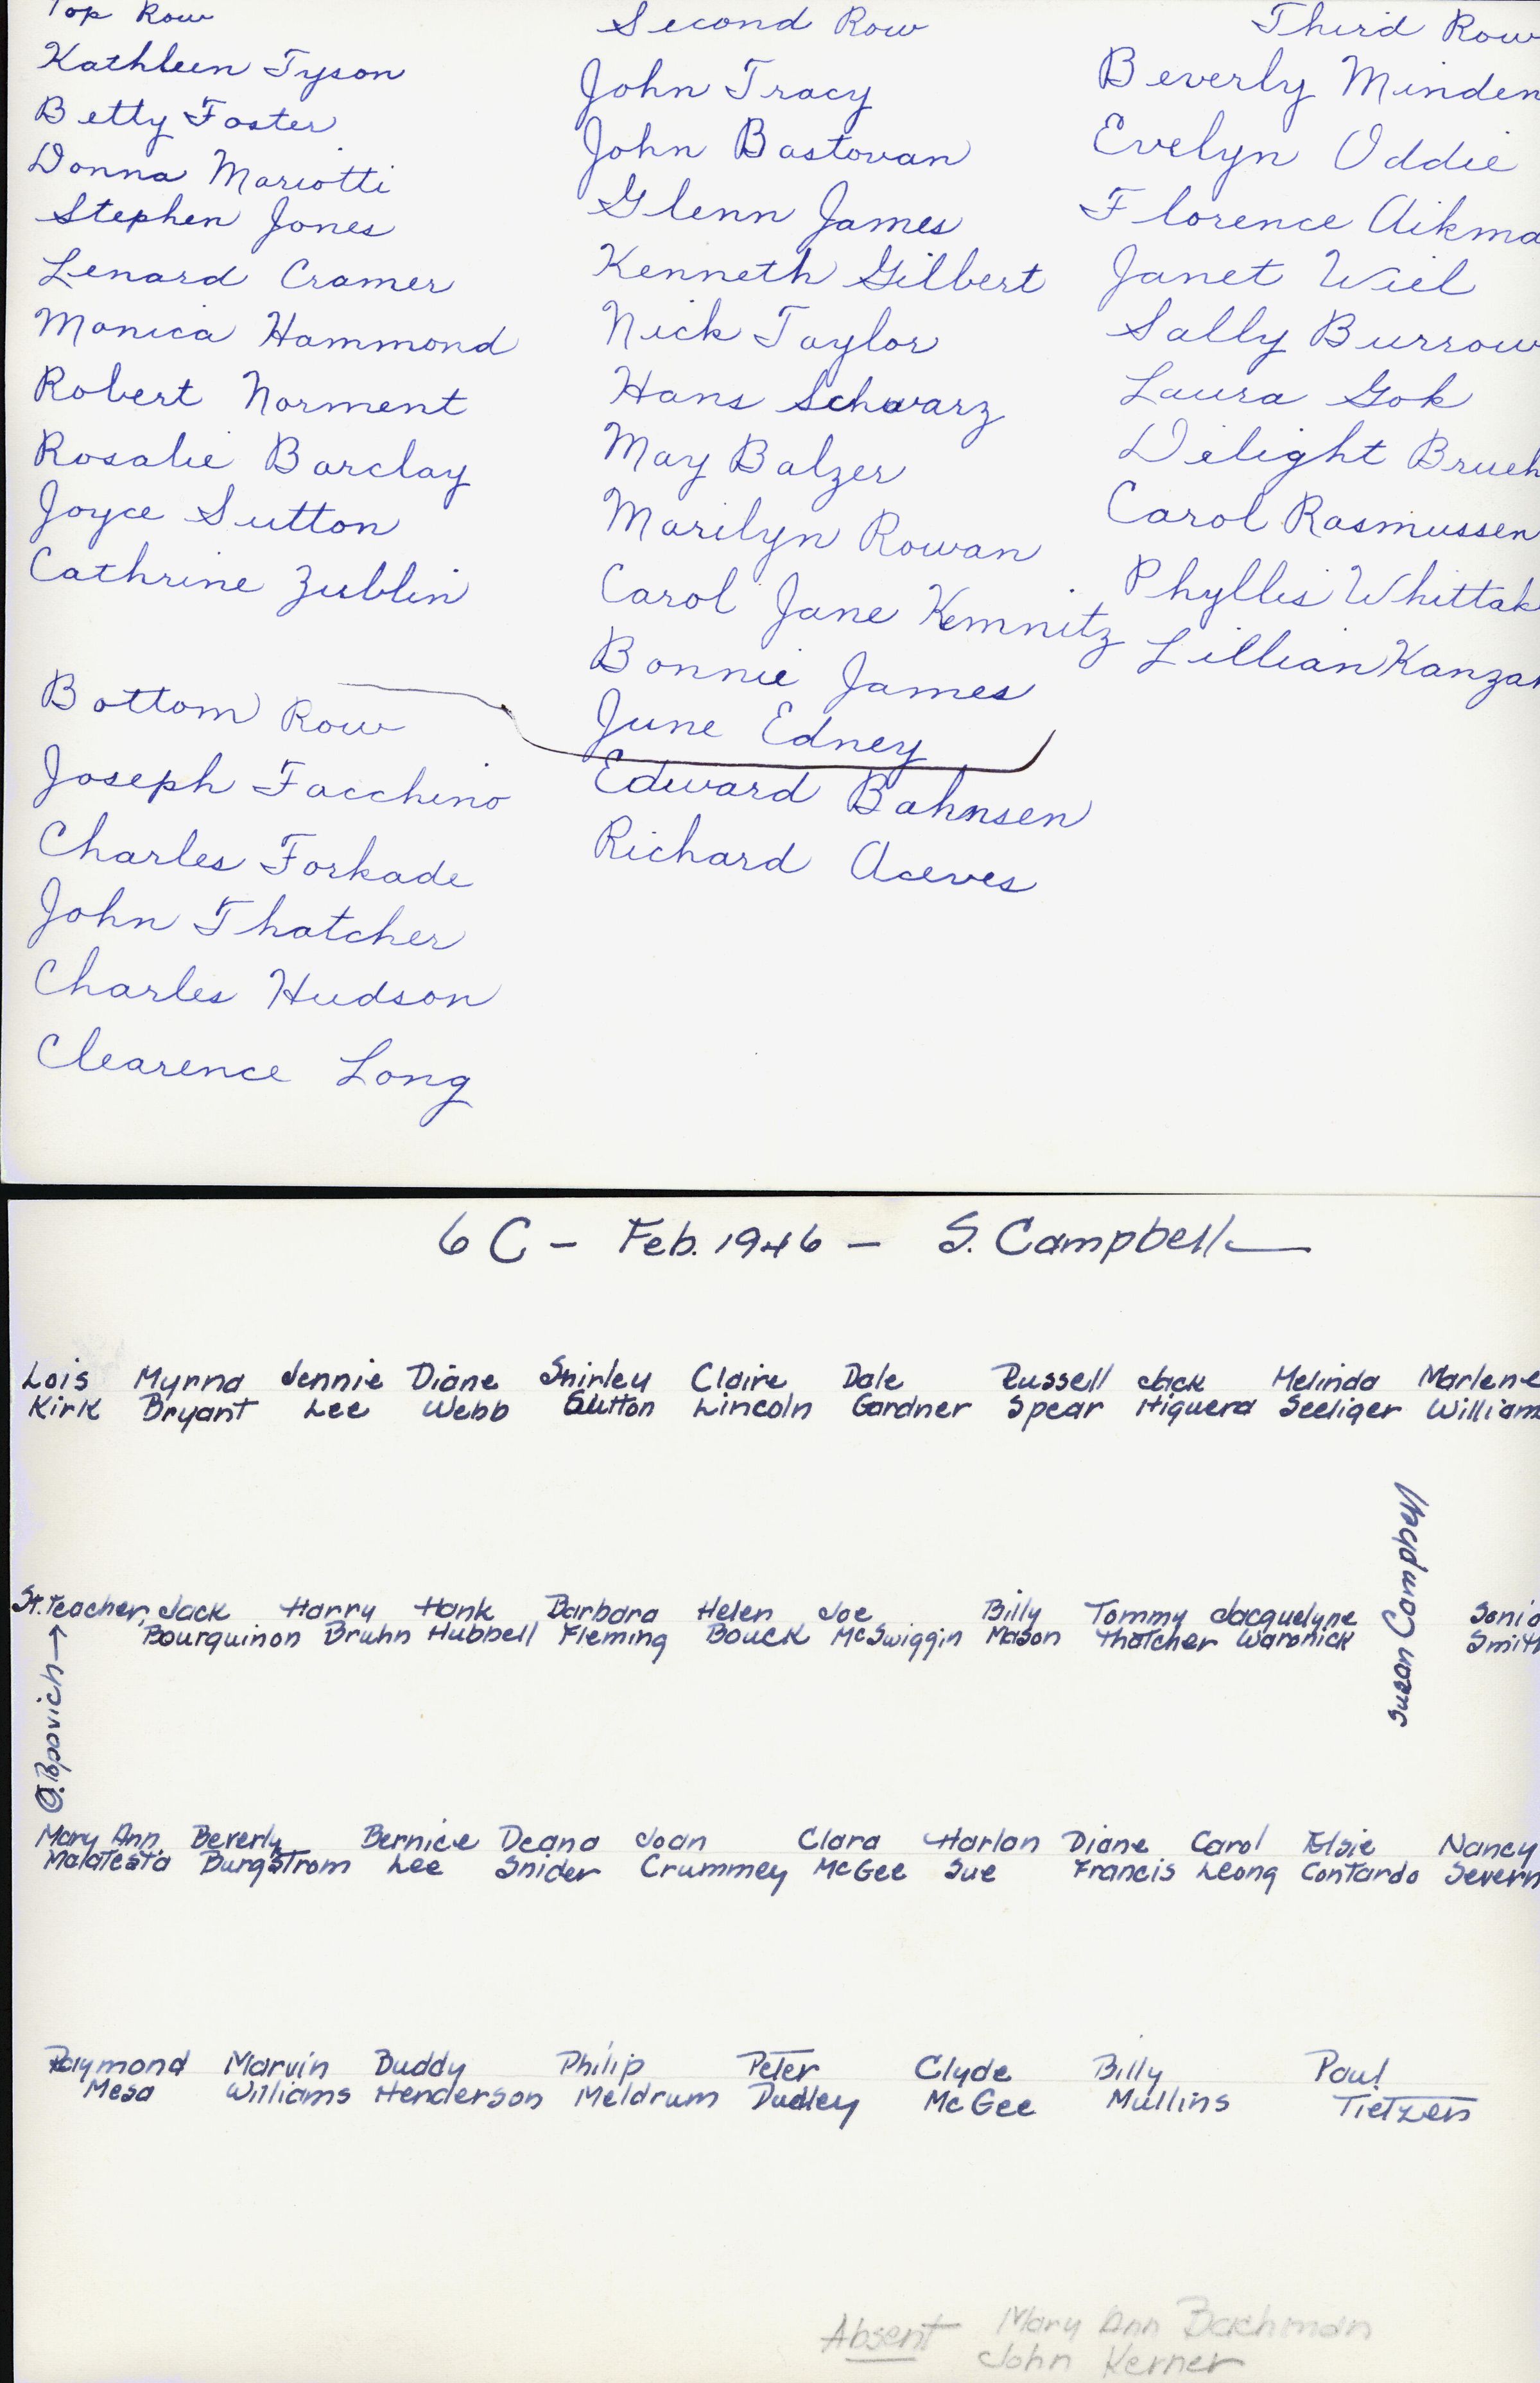 Top Row
Kathleen Tyson
Betty Foster
Donna Mariotti
Stephen Jones
Lenard Cramer
Monica Hammond
Robert Norment
Rosalie Barclay
Joyce Sutton
Cathrine Zublin
Bottom Row
Joseph Facchino
Charles Forkade
John Thatcher
Charles Hudson
Clearence Long
Second Row
John Tracy
John Bastovan
Glenn James
Kenneth Gilbert
Nick Taylor
Hans Schwarz
May Balzer
Marilyn Rowan
Carol Jane Kemnitz
Bonnie James
June Edney
Edward Bahnsen
Richard Aceves
Third Row
Beverly Minden
Evelyn Oddie
Florence Aikma
Janet Wiel
Sally Burrow
Laura Gok
Delight Brueh
Carol Rasmussen
Phyllis Whittak
Lillian Kanza
6C - Feb. 1946 - S. Campbell
Lois Myrna Jennie Diane Shirley Claire Dale Russell Jack Melinda Marlene
Kirk Bryant Lee Webb Sutton Lincoln Gardner Spear Higuera Seeliger William
St. Teacher, Jack Harry Hank Barbara Helen Joe Billy Tommy Jacquelyne Sonia
Bourquinon Bruhn Hubbell Fleming Bouck McSwiggin Mason Thatcher Waronick Smith
Susan Campbell
O. Popovich →
Mary Ann Beverly Bernice Deana Joan Clara Harlan Diane Carol Elsie Nancy
Malatesta Burgstrom Lee Snider Crummey McGee Sue Francis Leong Contardo Severn
Raymond Marvin Buddy Philip Peter Clyde Billy Paul
Mesa Williams Henderson Meldrum Dudley McGee Mullins Tietzen
Absent Mary Ann Bachman
John Kerner